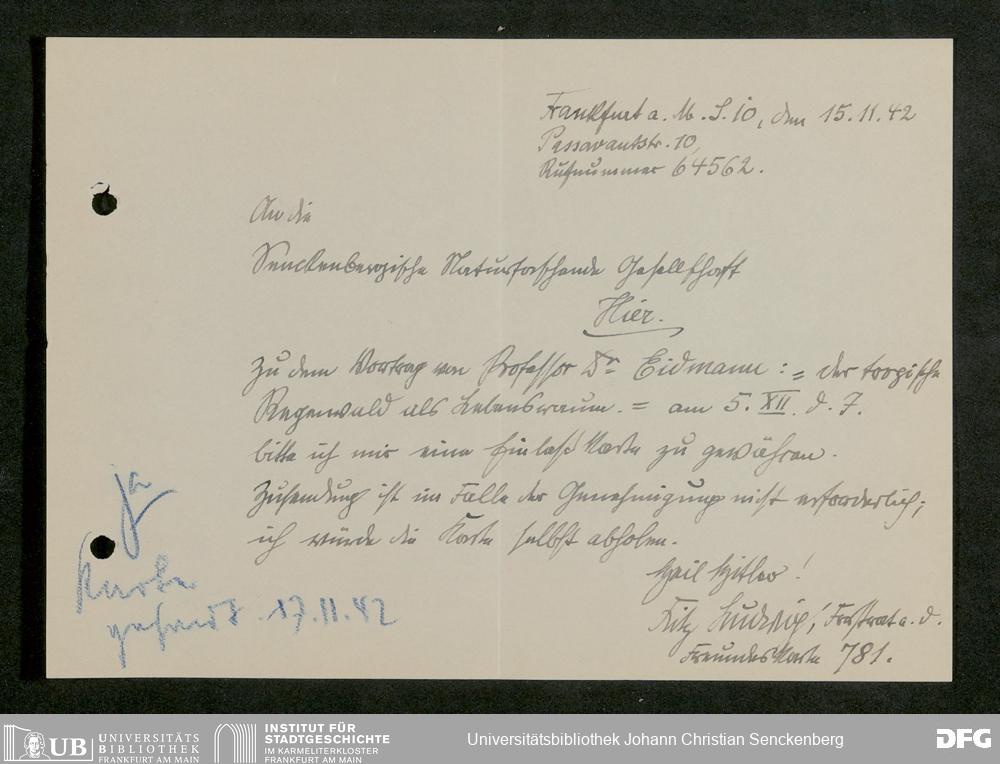 Frankfurt a. M. S. 10, den 15.11.42
Passavantstr. 10,
Rufnummer 64562.
An die
Senckenbergische Naturforschende Gesellschaft
Hier.
Zu dem Vortrag von Professor Dr Eidmann: = der tropische
Regenwald als Lebensraum. = am 5. XII. d. J.
bitte ich mir eine Einlaßkarte zu gewähren.
Zusendung ist im Falle der Genehmigung nicht erforderlich;
ich würde die Karte selbst abholen.
Heil Hitler!
Fritz Ludwig, Forstrat a. d.
Freundeskarte 781.
ja
Karte
gesandt 17.11.42
UB UNIVERSITÄTS
BIBLIOTHEK
FRANKFURT AM MAIN
INSTITUT FÜR
STADTGESCHICHTE
IM KARMELITERKLOSTER
FRANKFURT AM MAIN
Universitätsbibliothek Johann Christian Senckenberg
DFG